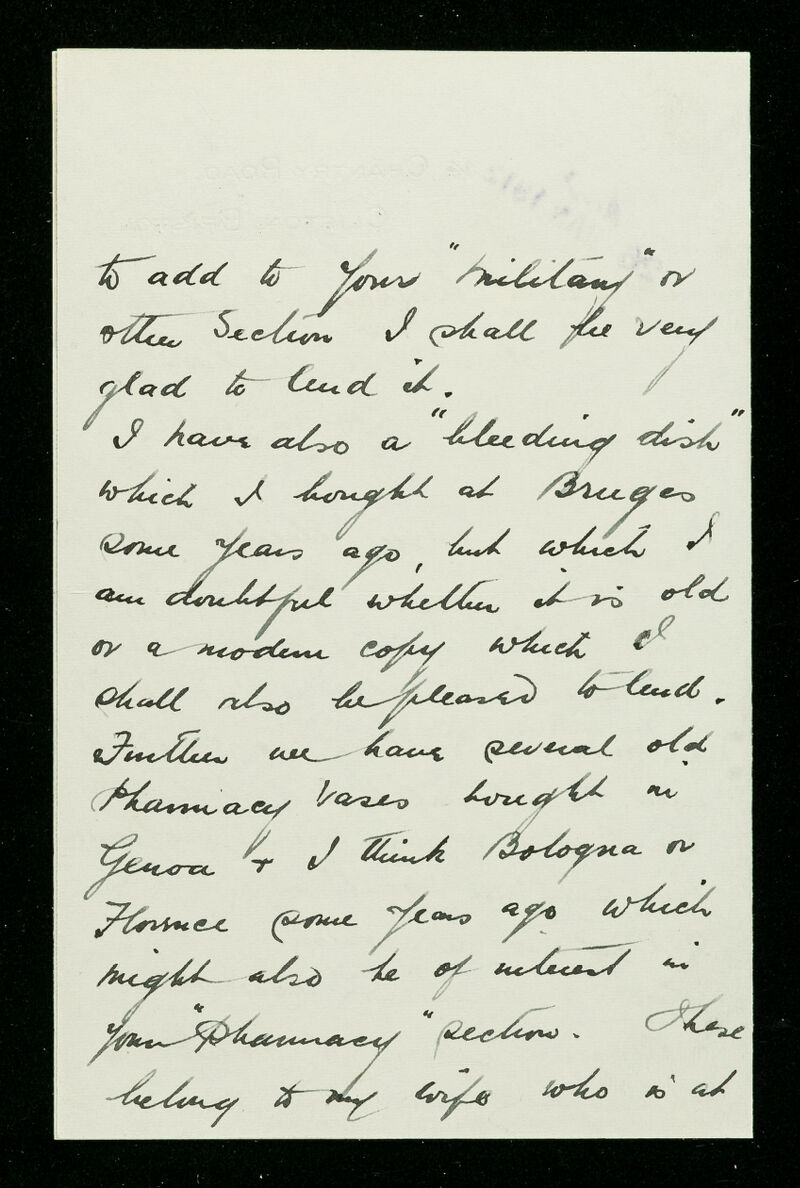 to add to your "Military" or
other Section I shall be very
glad to lend it.
I have also a "bleeding dish"
which I bought at Bruges
some years ago, but which I
am doubtful whether it is old
or a modern copy which I
shall also be pleased to lend.
Further we have several old
Pharmacy Vases bought in
Genoa + I think Bologna or
Florence some years ago which
might also be of interest in
your "Pharmacy" section. These
belong to my wife who is at